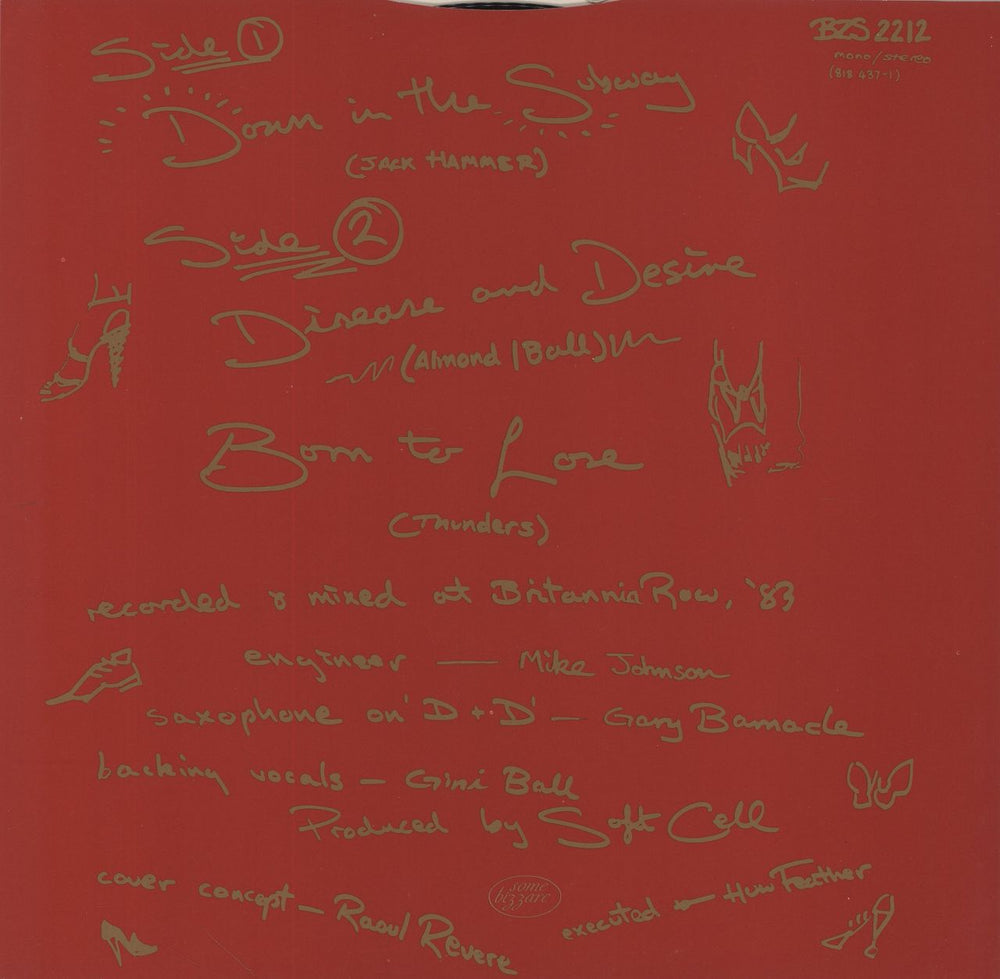 Side 1
BZS 2212
mono/stereo
(818 437-1)
Down in the Subway
(JACK HAMMER)
Side 2
Disease and Desire
(Almond / Ball)
Born to Lose
(Thunders)
recorded & mixed at Britannia Row, '83
engineer — Mike Johnson
saxophone on 'D + D' — Gary Barnacle
backing vocals — Gini Ball
Produced by Soft Cell
cover concept — Raoul Revere
some bizzare
executed — Huw Feather